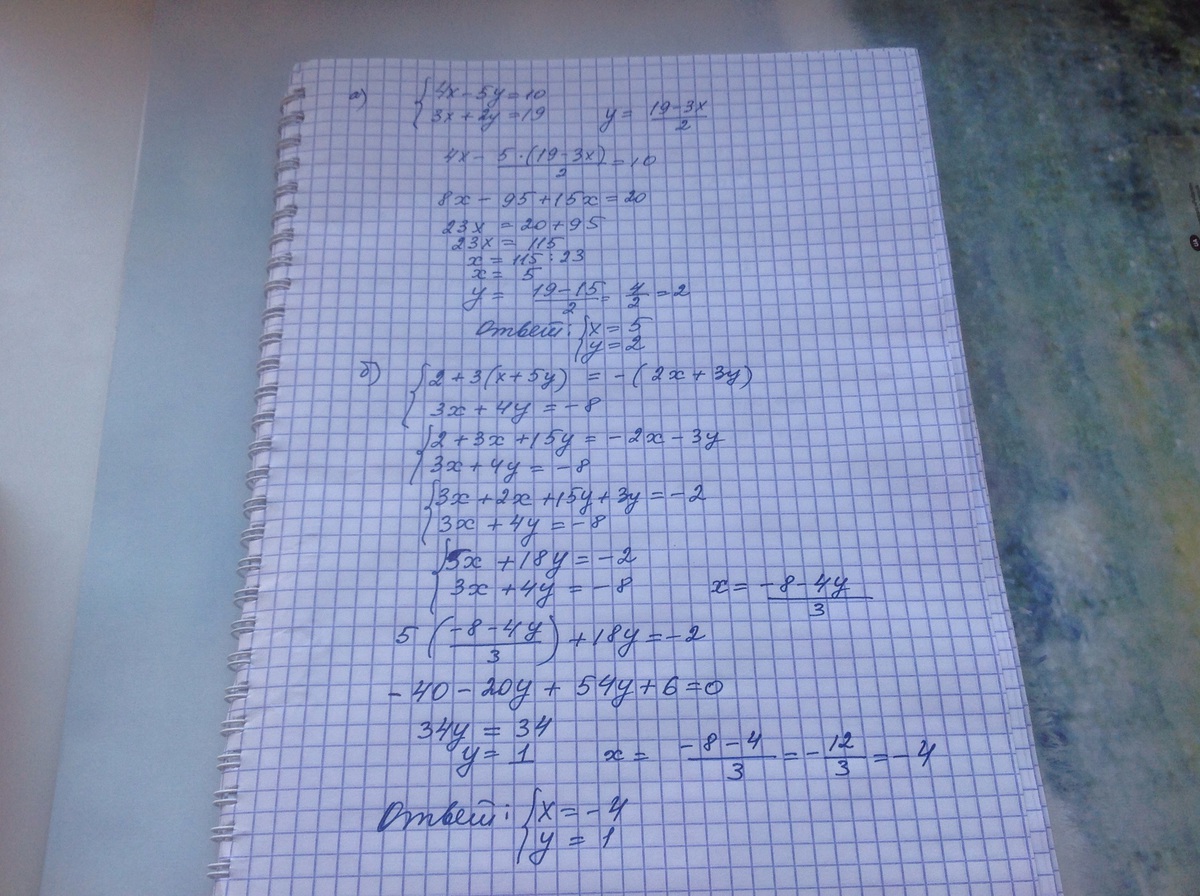 а) { 4x - 5y = 10
3x + 2y = 19 y = (19-3x)/2
4x - 5·(19-3x)/2 = 10
8x - 95 + 15x = 20
23x = 20 + 95
23x = 115
x = 115 : 23
x = 5
y = (19-15)/2 = 4/2 = 2
Ответ: { x = 5
y = 2
б) { 2 + 3(x + 5y) = -(2x + 3y)
3x + 4y = -8
{ 2 + 3x + 15y = -2x - 3y
3x + 4y = -8
{ 3x + 2x + 15y + 3y = -2
3x + 4y = -8
{ 5x + 18y = -2
3x + 4y = -8 x = (-8-4y)/3
5 ((-8-4y)/3) + 18y = -2
-40 - 20y + 54y + 6 = 0
34y = 34
y = 1 x = (-8-4)/3 = -12/3 = -4
Ответ: { x = -4
y = 1